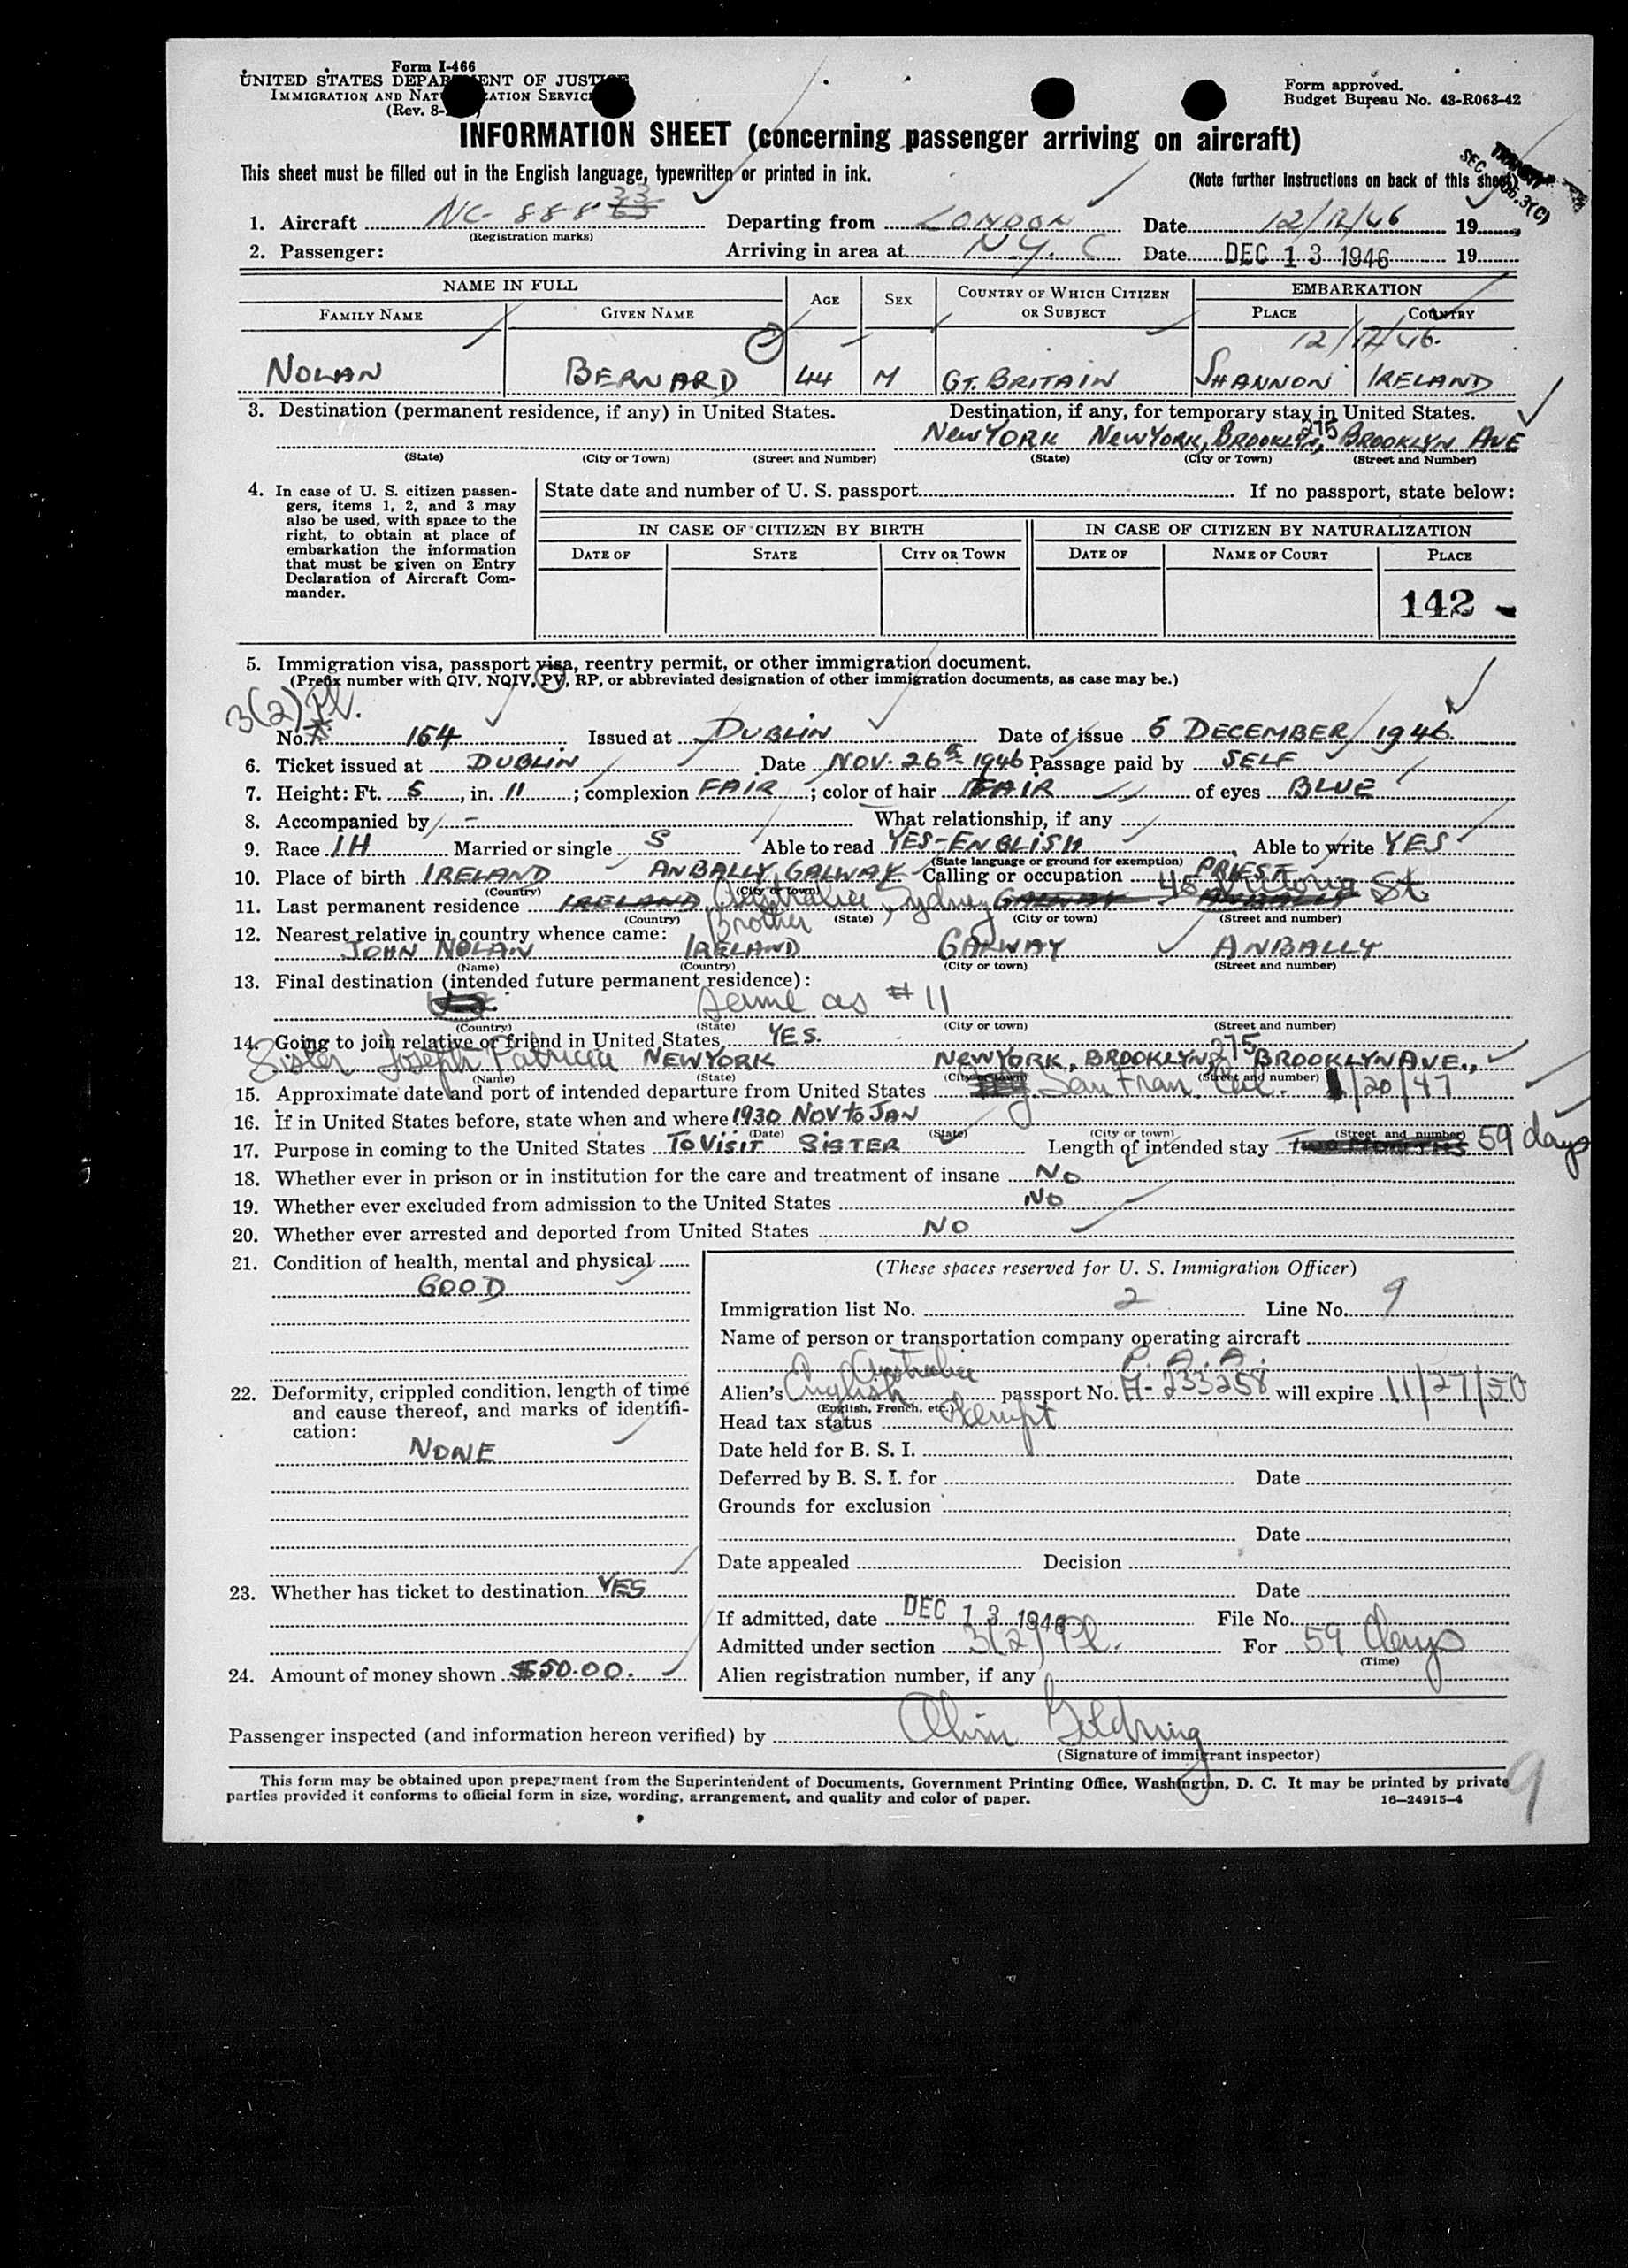 Form I-466
UNITED STATES DEPARTMENT OF JUSTICE
IMMIGRATION AND NATURALIZATION SERVICE
(Rev. 8-
Form approved.
Budget Bureau No. 43-R063-42
INFORMATION SHEET (concerning passenger arriving on aircraft)
This sheet must be filled out in the English language, typewritten or printed in ink.
(Note further instructions on back of this sheet)
SEC. 3(C)
1. Aircraft NC-888 33 Departing from LONDON Date 12/12/46 19
(Registration marks)
2. Passenger: Arriving in area at N.Y. C Date DEC 13 1946 19
NAME IN FULL AGE SEX COUNTRY OF WHICH CITIZEN OR SUBJECT EMBARKATION
FAMILY NAME GIVEN NAME PLACE COUNTRY
12/12/46.
NOLAN BERNARD 44 M GT. BRITAIN SHANNON IRELAND
3. Destination (permanent residence, if any) in United States. Destination, if any, for temporary stay in United States.
NEW YORK NEW YORK, BROOKLYN, 275 BROOKLYN AVE
(State) (City or Town) (Street and Number) (State) (City or Town) (Street and Number)
4. In case of U. S. citizen passengers, items 1, 2, and 3 may also be used, with space to the right, to obtain at place of embarkation the information that must be given on Entry Declaration of Aircraft Commander.
State date and number of U. S. passport If no passport, state below:
IN CASE OF CITIZEN BY BIRTH IN CASE OF CITIZEN BY NATURALIZATION
DATE OF STATE CITY OR TOWN DATE OF NAME OF COURT PLACE
142
5. Immigration visa, passport visa, reentry permit, or other immigration document.
(Prefix number with QIV, NQIV, PV, RP, or abbreviated designation of other immigration documents, as case may be.)
3(2) Pl.
No. 164 Issued at DUBLIN Date of issue 6 DECEMBER 1946.
6. Ticket issued at DUBLIN Date NOV. 26th 1946 Passage paid by SELF
7. Height: Ft. 5, in. 11; complexion FAIR; color of hair FAIR of eyes BLUE
8. Accompanied by - What relationship, if any
9. Race IH Married or single S Able to read YES-ENGLISH Able to write YES
(State language or ground for exemption)
10. Place of birth IRELAND ANBALLY, GALWAY Calling or occupation PRIEST
(Country) (City or town)
11. Last permanent residence IRELAND Australia, Sydney GALWAY 48 Victoria St ANBALLY
(Country) (State) (City or town) (Street and number)
12. Nearest relative in country whence came: Brother
JOHN NOLAN IRELAND GALWAY ANBALLY
(Name) (Country) (City or town) (Street and number)
13. Final destination (intended future permanent residence):
Same as #11
(Country) (State) (City or town) (Street and number)
14. Going to join relative or friend in United States YES.
Sister Joseph Patricia NEW YORK NEW YORK, BROOKLYN, 275 BROOKLYN AVE.,
(Name) (State) (City or town) (Street and number)
15. Approximate date and port of intended departure from United States San Fran. Cal. 1/20/47
16. If in United States before, state when and where 1930 NOV to JAN
(Date) (State) (City or town) (Street and number)
17. Purpose in coming to the United States TO VISIT SISTER Length of intended stay TWO MONTHS 59 days
18. Whether ever in prison or in institution for the care and treatment of insane NO
19. Whether ever excluded from admission to the United States NO
20. Whether ever arrested and deported from United States NO
21. Condition of health, mental and physical
GOOD
22. Deformity, crippled condition, length of time and cause thereof, and marks of identification:
NONE
23. Whether has ticket to destination YES
24. Amount of money shown $50.00.
(These spaces reserved for U. S. Immigration Officer)
Immigration list No. 2 Line No. 9
Name of person or transportation company operating aircraft
P. A. A.
Australia
Alien's English passport No. A-233258 will expire 11/27/50
(English, French, etc.)
Head tax status Exempt
Date held for B. S. I.
Deferred by B. S. I. for Date
Grounds for exclusion
Date
Date appealed Decision
Date
If admitted, date DEC 13 1946 File No.
Admitted under section 3(2) Pl. For 59 days
(Time)
Alien registration number, if any
Passenger inspected (and information hereon verified) by Goldring
(Signature of immigrant inspector)
This form may be obtained upon prepayment from the Superintendent of Documents, Government Printing Office, Washington, D. C. It may be printed by private
parties provided it conforms to official form in size, wording, arrangement, and quality and color of paper.
16—24915-4
9